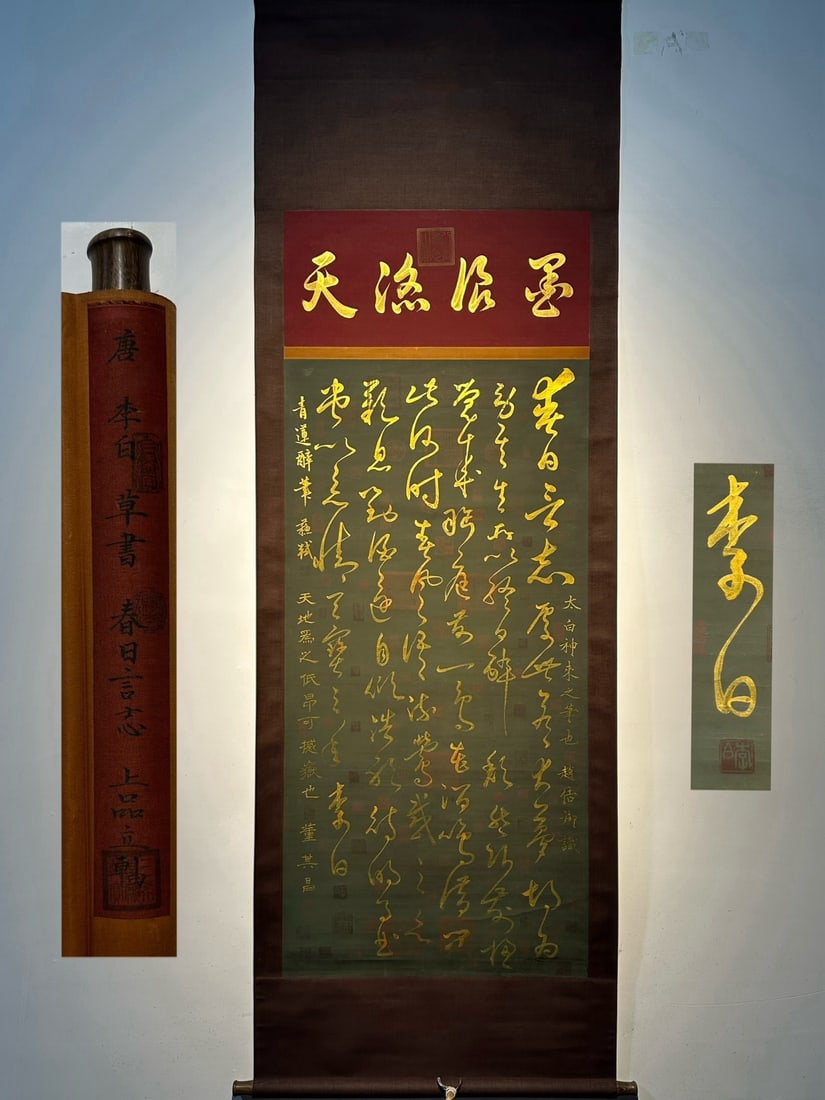 墨浪滔天
春日言志 處世若大夢 胡為
勞其生 所以終日醉 頹然臥前楹
覺來眄庭前 一鳥花間鳴 借問
此何時 春風語流鶯 感之欲
歎息 對酒還自傾 浩歌待明月 曲
盡已忘情 天寶 李白
太白神來之筆也 趙佶御識
青蓮醉筆 蘇軾
天地為之低昂可撼嶽也 董其昌
唐 李白 草書 春日言志 上品立軸
李白